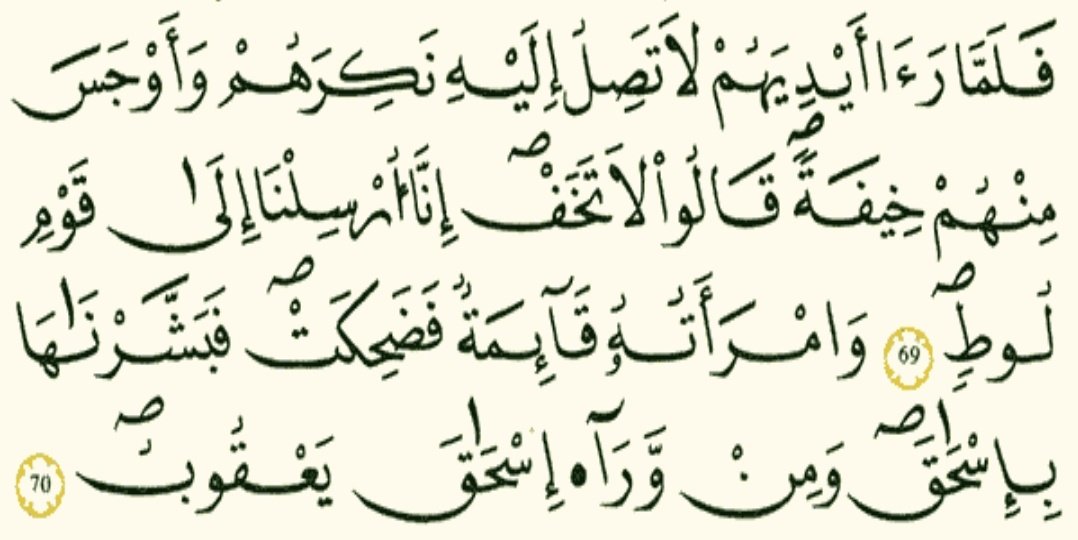 فَلَمَّا رَءَاۤ أَيْدِيَهُمْ لَا تَصِلُ إِلَيْهِ نَكِرَهُمْ وَأَوْجَسَ
مِنْهُمْ خِيفَةًۖ قَالُواْ لَا تَخَفْۖ إِنَّا أُرْسِلْنَا إِلَىٰ قَوْمِ
لُوطٍۖ 69 وَامْرَأَتُهُۥ قَآئِمَةٌ فَضَحِكَتْۖ فَبَشَّرْنَٰهَا
بِإِسْحَٰقَۖ وَمِنْ وَّرَآءِ إِسْحَٰقَ يَعْقُوبُۖ 70